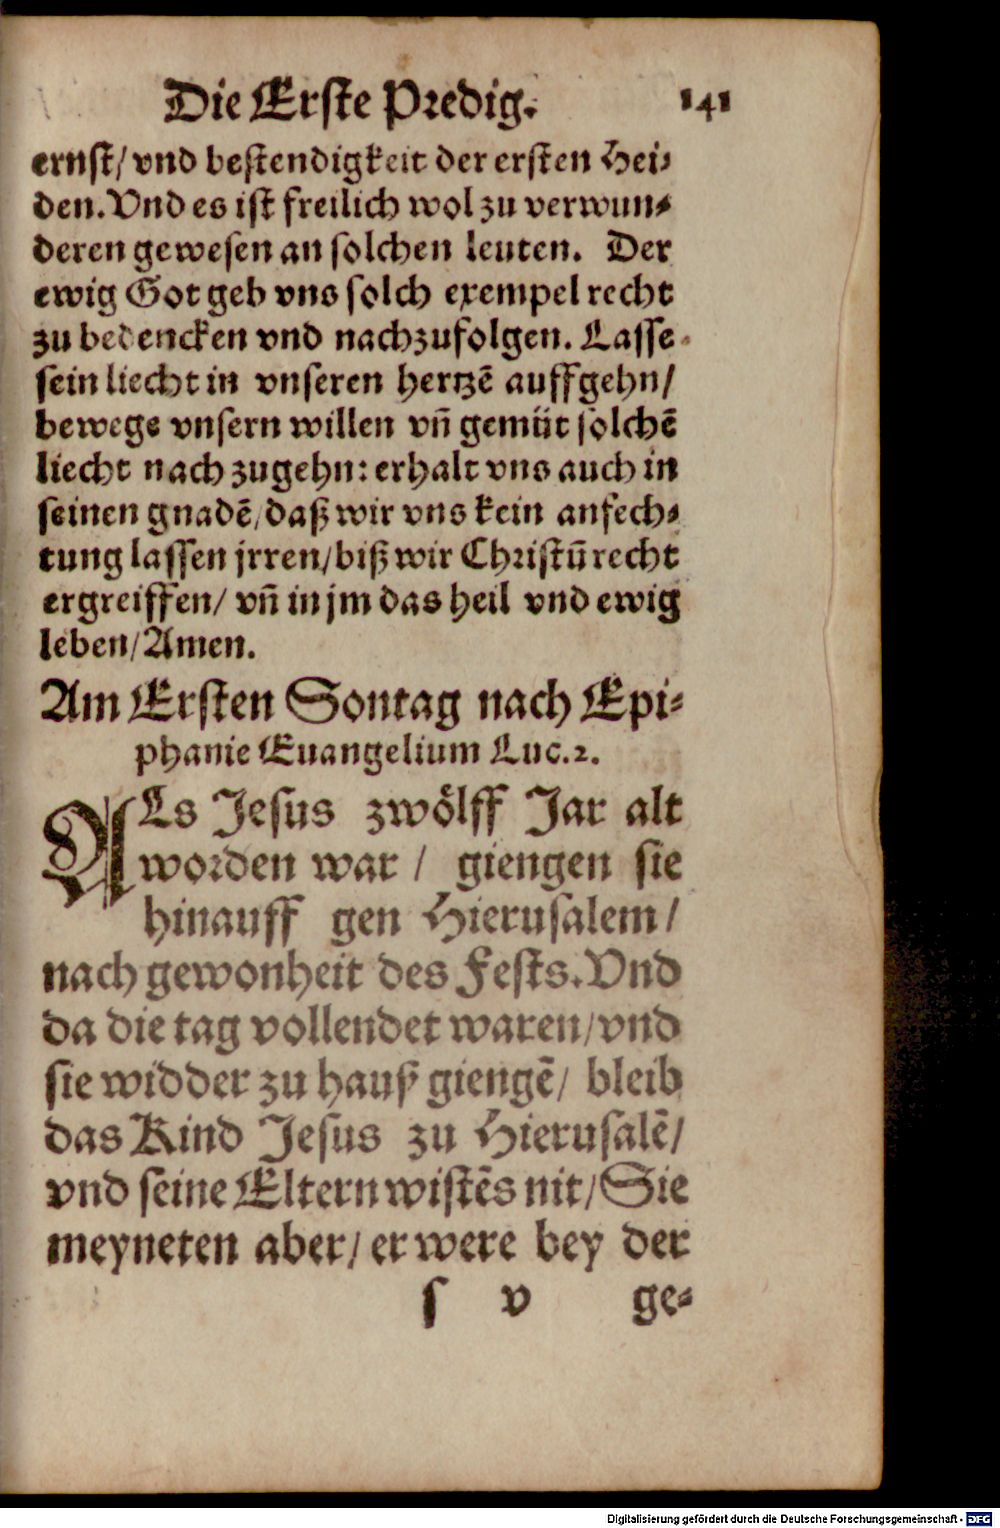 Die Erste Predig. 141
ernst/ vnd bestendigkeit der ersten Hei-
den. Vnd es ist freilich wol zu verwun-
deren gewesen an solchen leuten. Der
ewig Got geb vns solch exempel recht
zu bedencken vnd nachzufolgen. Lasse
sein liecht in vnseren hertzē auffgehn/
bewege vnsern willen vn̄ gemüt solchē
liecht nach zugehn: erhalt vns auch in
seinen gnadē/ daß wir vns kein anfech-
tung lassen jrren/ biß wir Christū recht
ergreiffen/ vn̄ in jm das heil vnd ewig
leben/ Amen.
Am Ersten Sontag nach Epi-
phanie Euangelium Luc. 2.
ALs Jesus zwölff Jar alt
worden war / giengen sie
hinauff gen Hierusalem/
nach gewonheit des Fests. Vnd
da die tag vollendet waren/ vnd
sie widder zu hauß giengē/ bleib
das Kind Jesus zu Hierusalē/
vnd seine Eltern wistēs nit/ Sie
meyneten aber/ er were bey der
s v ge-
Digitalisierung gefördert durch die Deutsche Forschungsgemeinschaft - DFG